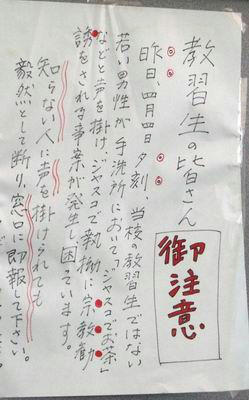 教習生の皆さん
御注意
昨日、四月四日夕刻、当校の教習生ではない
若い男性が手洗所において、「ジャスコでお茶」
などと声を掛け、ジャスコで執拗に宗教勧
誘をされる事案が発生し困っています。
知らない人に声を掛けられても
毅然として断り、窓口に即報して下さい。